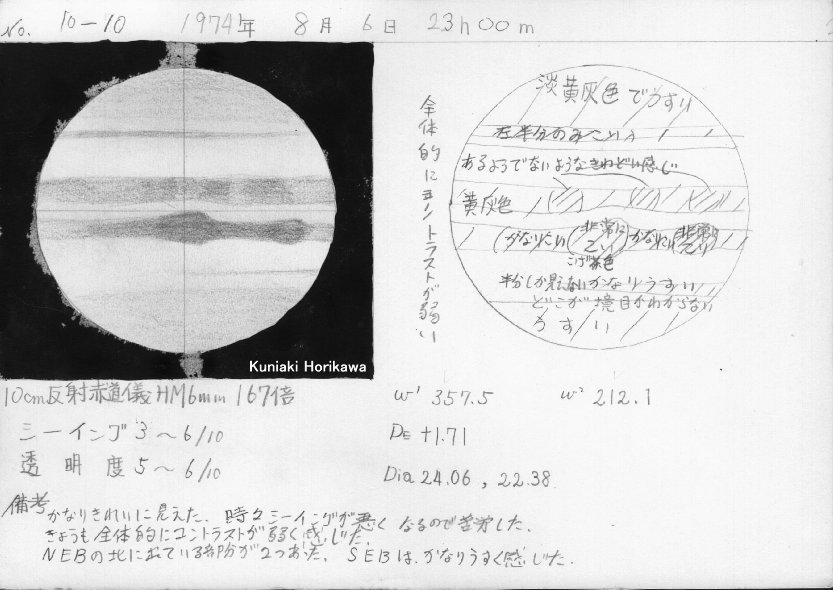 No. 10-10 1974年 8月 6日 23h00m
淡黄灰色でうすい
左半分のみこい
あるようでないようなきわどい感じ
黄灰色
かなりこい 非常にこい かなりこい 非常にこい
こげ茶色
半分しか見えないかなりうすい
どこが境目かわからない
うすい
全体的にコントラストが弱い
Kuniaki Horikawa
10cm反射赤道儀 HM6mm 167倍
シーイング 3〜6/10
透明度 5〜6/10
ω¹ 357.5 ω² 212.1
DE +1.71
Dia 24.06, 22.38
備考
かなりきれいに見えた。時々シーイングが悪くなるので苦労した。
きょうも全体的にコントラストが弱く感じた。
NEBの北に出ている部分が2つあった。SEBは、かなりうすく感じた。